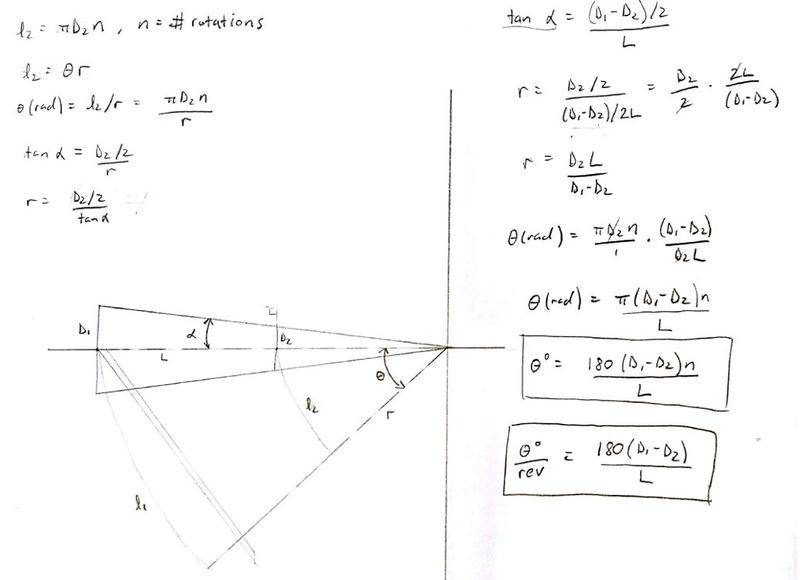 l₂ = πD₂n , n = # rotations
l₂ = θr
θ(rad) = l₂/r = πD₂n / r
tan α = D₂/2 / r
r = D₂/2 / tan α
tan α = (D₁-D₂)/2 / L
r = D₂/2 / (D₁-D₂)/2L = D₂/2 · 2L/(D₁-D₂)
r = D₂L / D₁-D₂
θ(rad) = πD₂n / 1 · (D₁-D₂) / D₂L
θ(rad) = π(D₁-D₂)n / L
θ° = 180(D₁-D₂)n / L
θ°/rev = 180(D₁-D₂) / L
D₁
α
L
D₂
θ
l₂
r
l₁